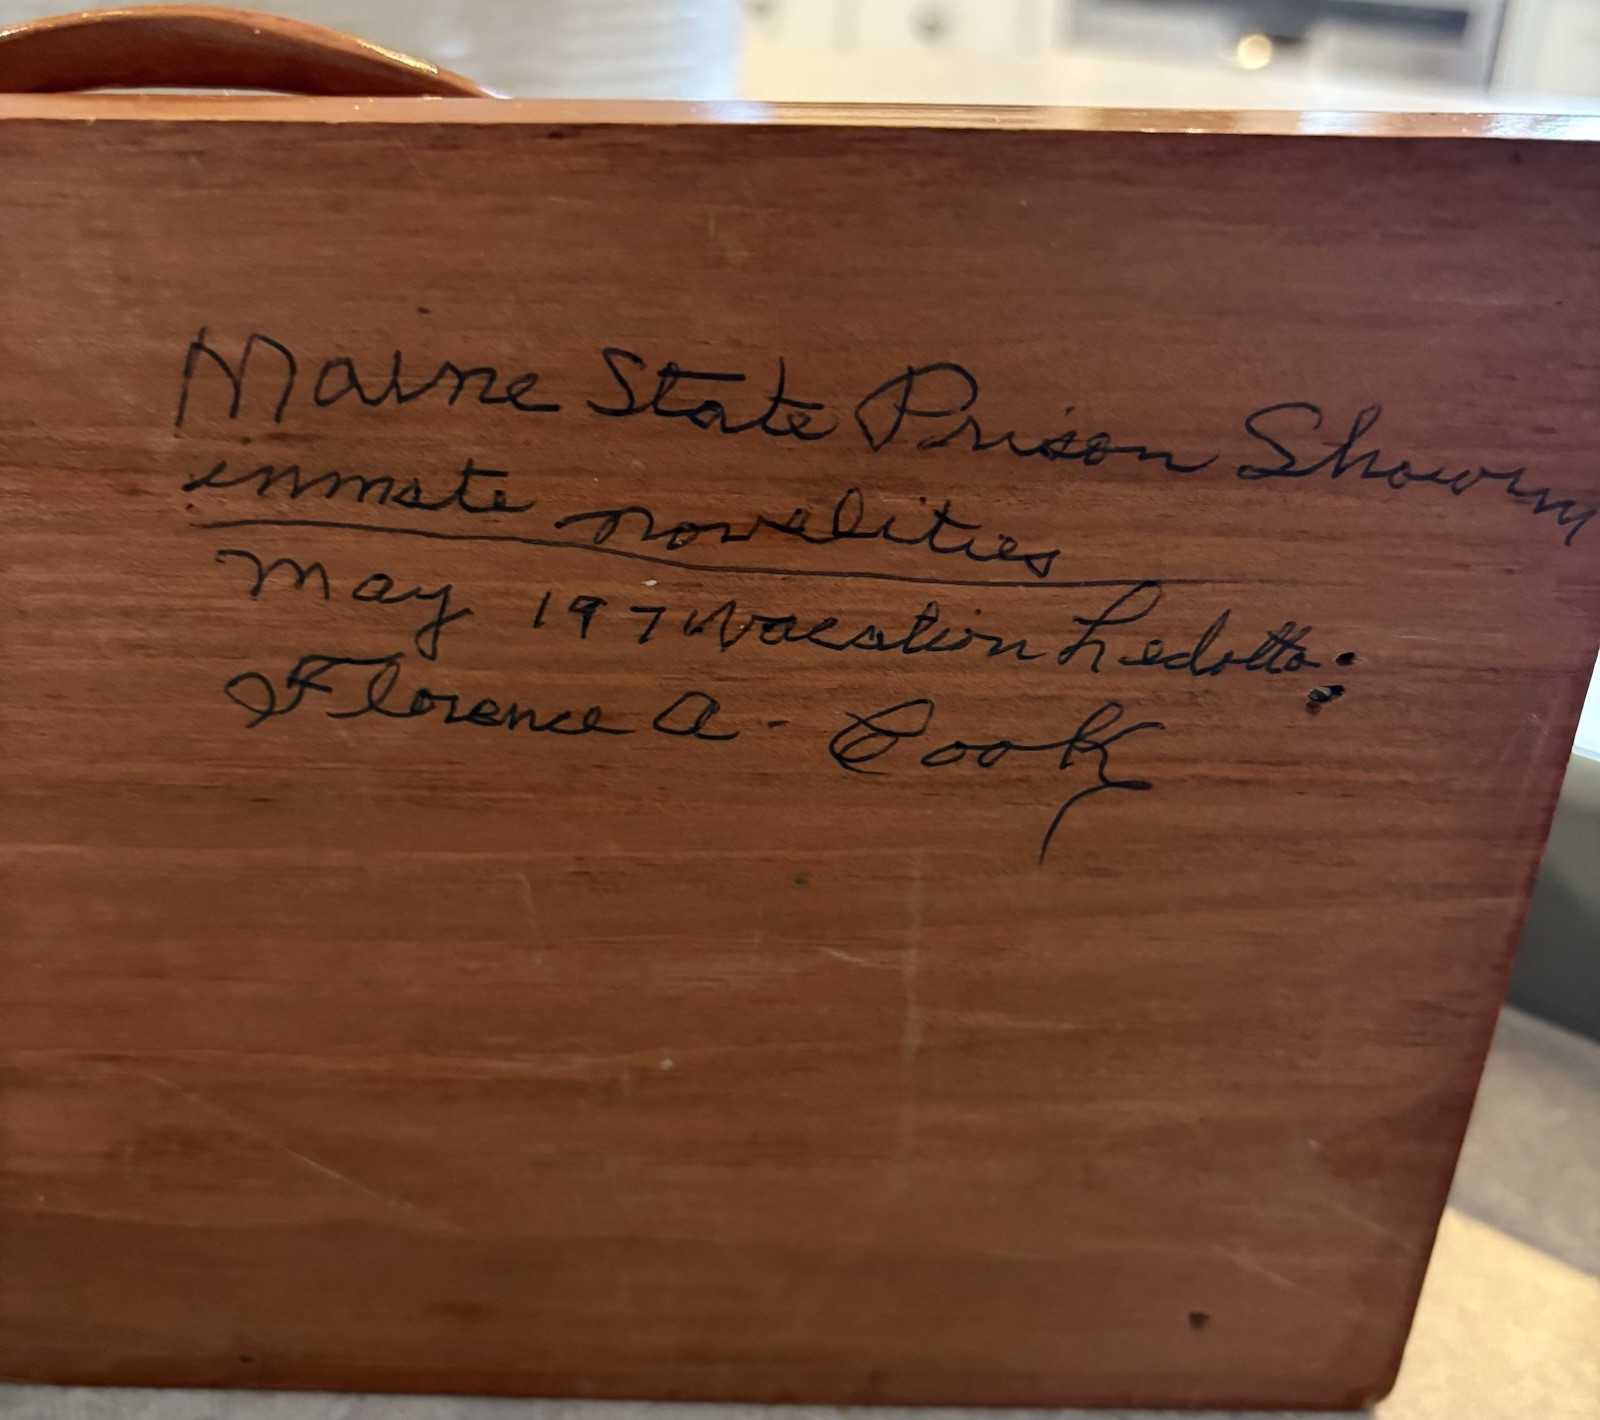 Maine State Prison Showrm
inmate novelities
May 197 vacation
Florence A. Cook